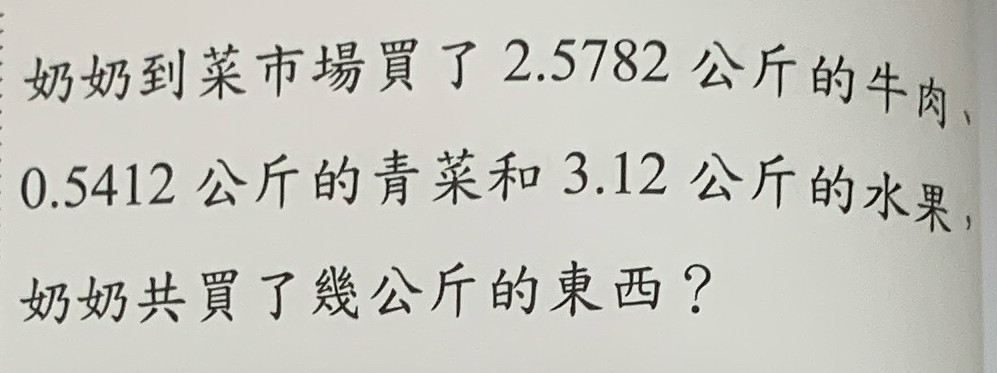 奶奶到菜市場買了 2.5782 公斤的牛肉、
0.5412 公斤的青菜和 3.12 公斤的水果,
奶奶共買了幾公斤的東西?